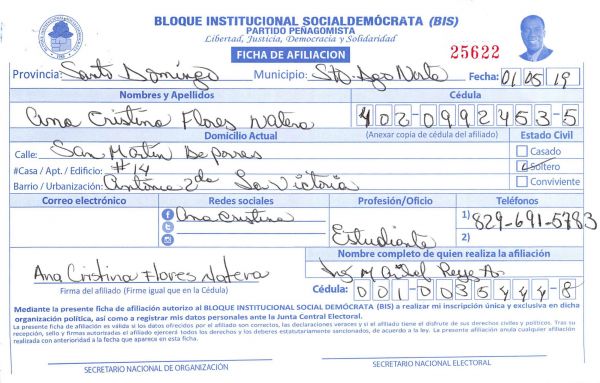 BLOQUE INSTITUCIONAL SOCIALDEMÓCRATA (BIS)
PARTIDO PEÑAGOMISTA
Libertad, Justicia, Democracia y Solidaridad
FICHA DE AFILIACION
25622
Provincia: Santo Domingo Municipio: Sto. Dgo Norte Fecha: 01/05/19
Nombres y Apellidos Cédula
Ana Cristina Flores Natera 402-0992453-5
Domicilio Actual (Anexar copia de cédula del afiliado) Estado Civil
Calle: San Martín De Porres Casado
#Casa / Apt. / Edificio: #14 Soltero
Barrio / Urbanización: 2da La Victoria Conviviente
Correo electrónico Redes sociales Profesión/Oficio Teléfonos
Ana Cristina Estudiante 1) 829-691-5783
2)
Nombre completo de quien realiza la afiliación
Ana Cristina Flores Natera Ing
Firma del afiliado (Firme igual que en la Cédula) Cédula: 001-0035444-8
Mediante la presente ficha de afiliación autorizo al BLOQUE INSTITUCIONAL SOCIAL DEMÓCRATA (BIS) a realizar mi inscripción única y exclusiva en dicha
organización política, así como a registrar mis datos personales ante la Junta Central Electoral.
La presente ficha de afiliación es válida si los datos ofrecidos por el afiliado son correctos, las declaraciones veraces y si el afiliado tiene el disfrute de sus derechos civiles y políticos. Tras su
recepción, sello y firmas autorizadas el afiliado ejercerá todos los derechos y los deberes estatutariamente sancionados, de acuerdo a la ley. La presente afiliación anula cualquier afiliación
realizada con anterioridad a la fecha que aparece en esta ficha.
SECRETARIO NACIONAL DE ORGANIZACIÓN SECRETARIO NACIONAL ELECTORAL